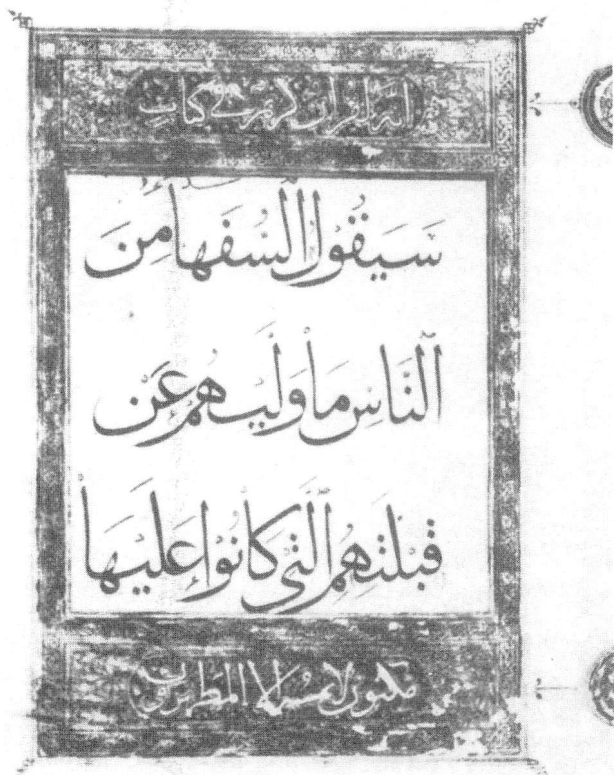 انه لقران كريم في كتاب
سَيَقُولُ ٱلسُّفَهَاۤءُ مِنَ
ٱلنَّاسِ مَا وَلَّيٰهُمْ عَنْ
قِبْلَتِهِمُ ٱلَّتِي كَانُوْا عَلَيْهَا
مكنون لا يمسه الا المطهرون